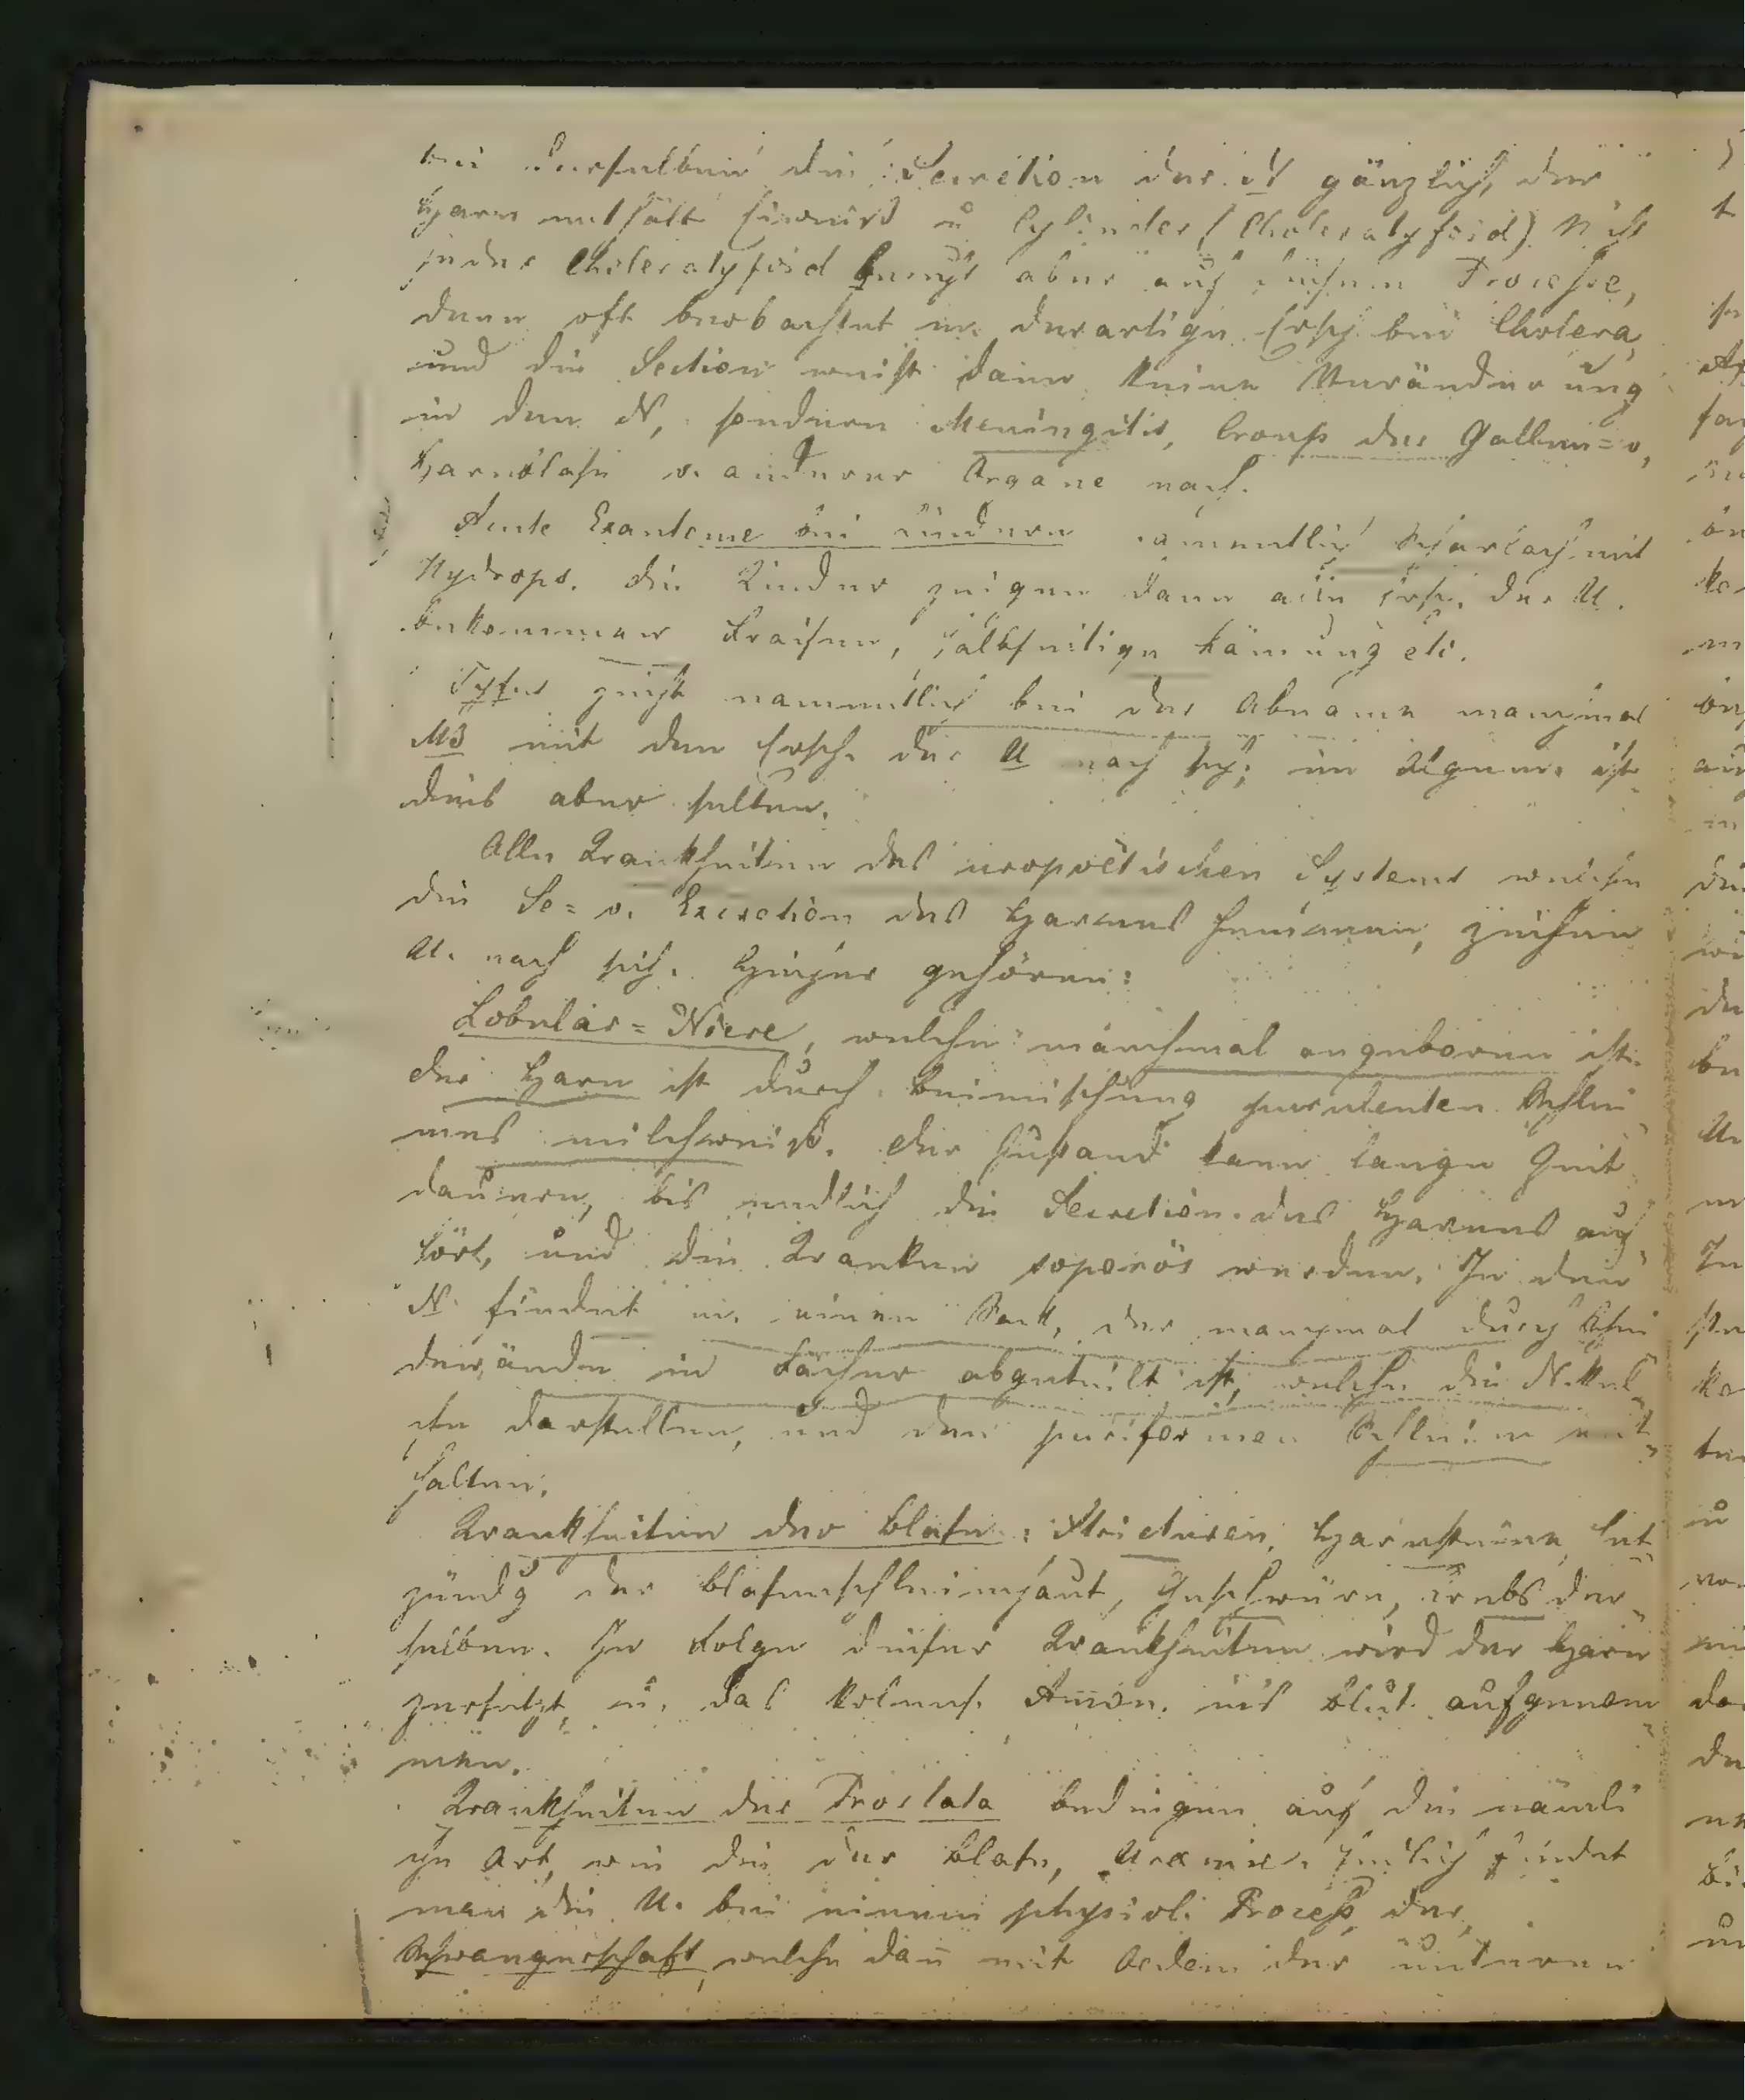 derselben die Secretion der N gänzlich, der
Harn enthält Eiweiß u Cylinder (Choleratyfoid). Nicht
jedes Choleratyfoid beruht aber auf diesem Processe,
denn oft beobachtet m. derartige Ersch. bei Cholera,
und die Section weist dann keine Veränderung
in den N, sondern Meningitis, Croup der Gallen= o,
Harnblase o. anderer Organe nach.
Acute Exanteme bei Kindern namentlich Scharlach mit
Hydrops. die Kinder zeigen dann alle Ersch. der U.
bekommen Fraisen, halbseitige Lämung etc.
Tyfus zieht namentlich bei der Abname manchmal
MB mit den Ersch. der U nach sich; im Algem. ist
dies aber selten.
Alle Krankheiten des uropoëtischen Systems welche
die Se= o. Excretion des Harnes hemmen, ziehen
U. nach sich. Hieher gehören:
Lobular=Niere, welche manchmal angeboren ist.
der Harn ist durch Beimischung purulenten Schlei
mes milchweiß. der Zustand kann lange Zeit
dauern, bis endlich die Secretion des Harnes auf
hört, und die Kranken soporös werden. In den
N. findet m. einen Sack, der manchmal durch Schei
dewände in Fächer abgeteilt ist, welche die N.kel
che darstellen, und den puriformen Schleim ent
halten.
Krankheiten der Blase: Stricturen, Harnsteine, Ent
zündg der Blasenschleimhaut, Geschwüre, Krebs der
selben. In Folge dieser Krankheiten wird der Harn
zersetzt, u. das kolens. Amon. ins Blut aufgenom
men.
Krankheiten der Prostata bedingen auf die nämli
che Art, wie die der Blase, Uraemie. Endlich findet
man die U. bei einem physiol. Proceß, der
Schwangerschaft, welche dañ mit Oedem der unteren